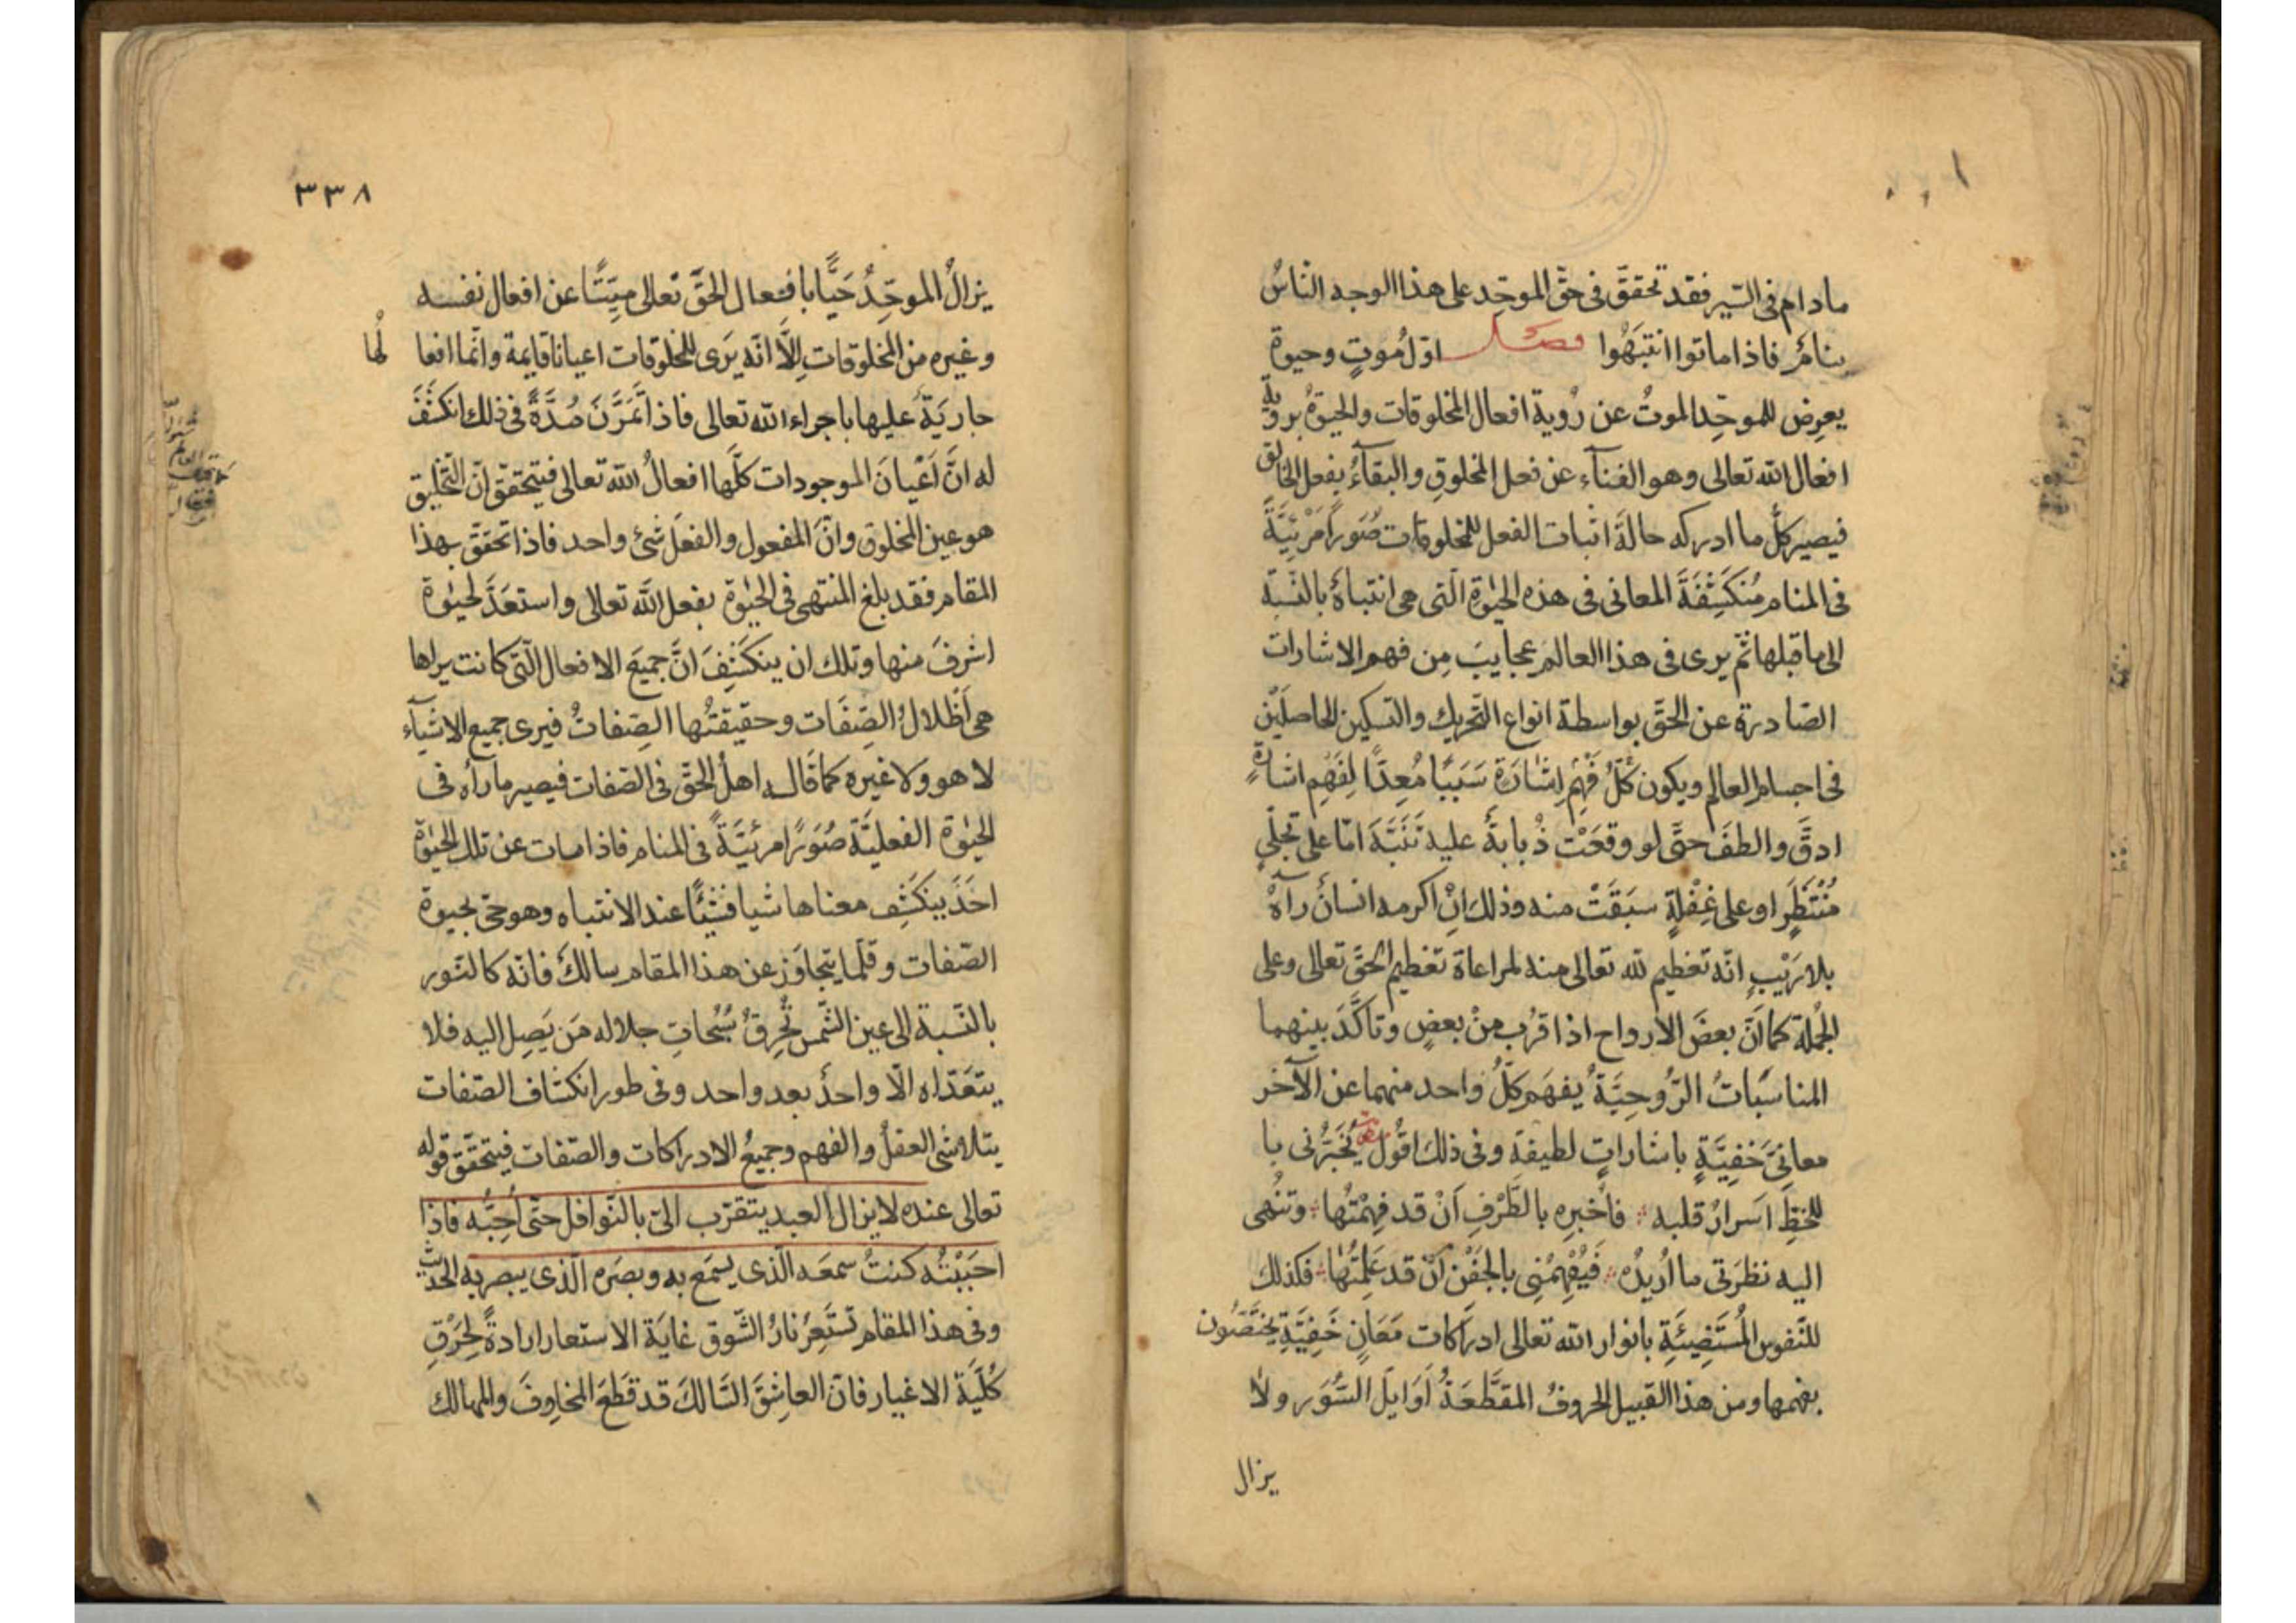 مادام فى السّير فقد تحققّ فى حقّ الموحّد على هذا الوجه النّاسُ
ينامُ فاذا ماتوا انتبَهُوا فصل اوّل مُوتٍ وحيوة
يعرِض للموحّد الموتُ عن رُوية افعال المخلوقات والحيوةُ بروية
افعال الله تعالى وهو الفنآء عن فعل المخلوقِ والبقآءُ بفعل الخالق
فيصير كلُّ ما ادركه حالةَ اثبات الفعل للمخلوقات صُوَراً مَرْئِيَّةً
فى المنام مُنكَشِفَةَ المعانى فى هذه الحيٰوةِ الّتى هى انتباهُ بالنّسبة
الى ما قبلها ثمّ يرى فى هذا العالم عجايبَ مِن فهم الاشارات
الصّادرة عن الحقّ بواسطة انواع التّحريك والتسكين الحاصلَيْن
فى اجسام العالم ويكون كُلُّ فَهْمِ اِشٰارَةٍ سَبَبًا مُعِدًّا لِفَهْمِ اشارةٍ
ادقَّ والطفَ حتّى لو وقعَتْ ذُبابةُ عليه تَنَبَّهَ امّا على تجلّىٍ
مُنْتَظَرٍ او على غِفْلةٍ سبَقَتْ منه وذلك اِنْ اكرمه انسانُ رآهُ
بلا رَيْبٍ انّه تعظيم لله تعالى منه لمراعاة تعظيم الحقّ تعالى وعلى
الجُملة كما انّ بعضَ الارواح اذا قرُب مِنْ بعضٍ وتاكَّدَ بينهما
المناسَباتُ الرُّوحِيَّةُ يفهَم كلُّ واحد منهما عن الآخر
معانىَ خَفِيَّةٍ باشاراتٍ لطيفة وفى ذلك اقُول يُخَبِّرُنى با
للحْظِ اَسرارُ قلبه فاُخبره بالطَّرْفِ اَنْ قد فَهِمْتُها وتُنْهى
اليه نظرَتى ما اُريدُه فَيُفْهِمُنِى بالجَفْن اَنْ قد عَلِمْتُها فكذلك
للنّفوس المُسْتَضِيئَةِ بانوار الله تعالى ادراكات مَعَانٍ خَفِيَّةٍ يختصّون
بفهمها ومن هذا القبيل الحروفُ المقطَّعَةُ اَوَايلَ السُّوَر ولا
يزال
٣٣٨
يزالُ الموحِّدُ حَيًّا بافعال الحَقِّ تعالى ميِّتًا عن افعال نفسه
وغيره من المخلوقاتِ اِلاَّ انّه يَرى للمخلوقات اعيانا قايمة وانّما افعا
لُها
جاريَةُ عليها باجراء الله تعالى فاذا تمَرَّنَ مُدَّةً فى ذلك انكشَفَ
له انَّ اَعْيانَ الموجودات كلَّها افعالُ الله تعالى فيتحقّق انّ التّخليق
هو عين المخلوق وانّ المفعول والفعلَ شئ واحد فاذا تحقّق بهذا
المقام فقد بلغ المنتهى فى الحيٰوة بفعل الله تعالى واستعَدَّ لحيٰوة
اشرفَ منها وتلك ان ينكشِفَ انَّ جميعَ الافعال الّتى كانت يراها
هى اَظْلالُ الصِّفَات وحقيقتُها الصِّفاتُ فيرى جميع الاشيآء
لا هو ولا غيره كما قال اهلُ الحقّ فى الصّفات فيصير ما رآه فى
الحيٰوة الفعليَّة صُوَرًا مرئيَّةً فى المنام فاذا مات عن تلك الحيٰوة
اخَذَ ينكَشِف معناها شيا فشيًا عند الانتباه وهو حىّ بحيوة
الصّفات وقلّما يتجاوَز عن هذا المقام سالكُ فانّه كالنّور
بالنّسبة الى عين الشّمس تُحرِقُ سُبُحاتِ جلاله مَن يَصِل اليه فلا
يتعَدّاه الّا واحدُ بعد واحد وفى طور انكشاف الصّفات
يتلاشى العقلُ والفهم وجميعُ الادراكات والصّفات فيتحقّق قوله
تعالى عنده لا يزال العبد يتقرّب الىّ بالنّوافل حتّى اُحِبُّه فاذا
احبَبْتُه كنتُ سمعَه الّذى يسمَع به وبصَره الّذى يبصر به الحديث
وفى هذا المقام تستَعِرُ نارُ الشّوق غايةَ الاستعار ارادةً لحَرْقِ
كُلّيّة الاغيار فانّ العاشِقَ السّالكَ قد قَطَعَ المخاوِفَ والمهالك